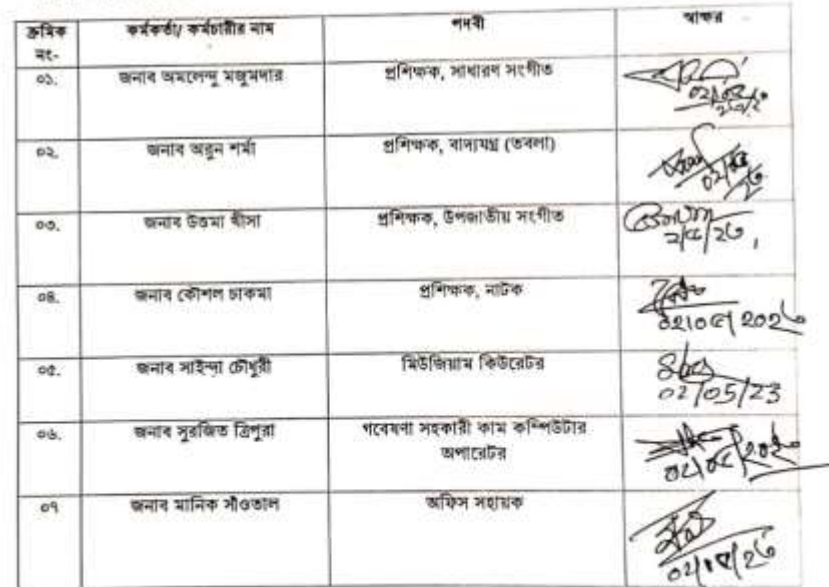 ক্রমিক নং- কর্মকর্তা/ কর্মচারীর নাম পদবী স্বাক্ষর
০১. জনাব অমলেন্দু মজুমদার প্রশিক্ষক, সাধারণ সংগীত
০২. জনাব অরুন শর্মা প্রশিক্ষক, বাদ্যযন্ত্র (তবলা)
০৩. জনাব উত্তমা খীসা প্রশিক্ষক, উপজাতীয় সংগীত
২/৫/২৩
০৪. জনাব কৌশল চাকমা প্রশিক্ষক, নাটক
০২/০৫/২০২৩
০৫. জনাব সাইন্দা চৌধুরী মিউজিয়াম কিউরেটর
02/05/23
০৬. জনাব সুরজিত ত্রিপুরা গবেষণা সহকারী কাম কম্পিউটার
অপারেটর
০৭ জনাব মানিক সাঁওতাল অফিস সহায়ক
০২/০৫/২৩